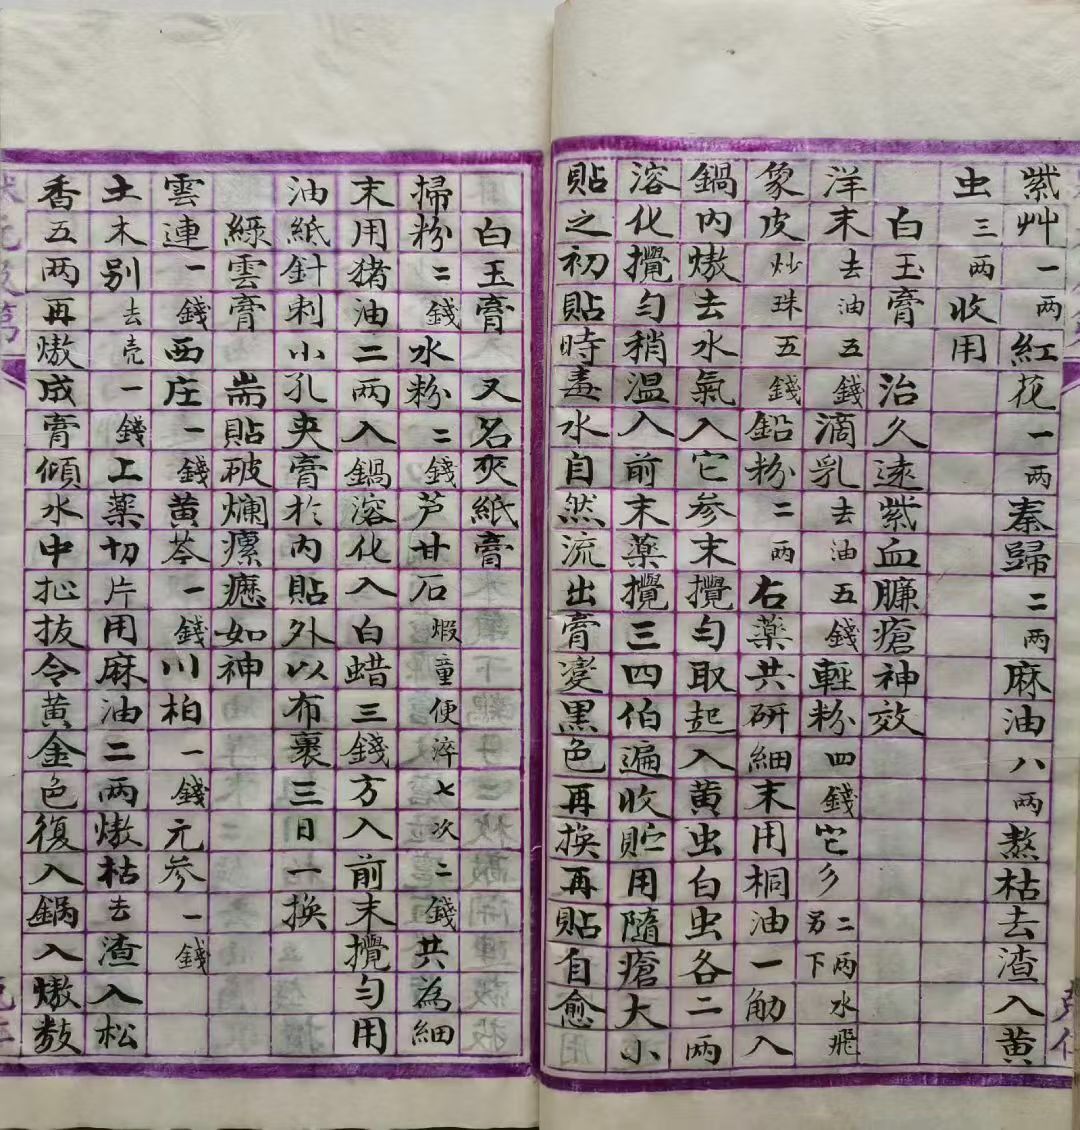 紫艸一两紅花一两秦歸二两麻油八两熬枯去渣入黄
虫三两收用
白玉膏 治久遠紫血臁瘡神效
洋末去油五錢滴乳去油五錢輕粉四錢它彡二两水飛另下
象皮炒珠五錢鉛粉二两右藥共研細末用桐油一觔入
鍋內熬去水氣入它参末攪匀取起入黄虫白虫各二两
溶化攪匀稍温入前末藥攪三四伯遍收貯用隨瘡大小
貼之初貼時毒水自然流出膏變黑色再换再貼自愈
白玉膏 又名夾紙膏
掃粉二錢水粉二錢芦甘石煆童便淬七次二錢共為細
末用猪油二两入鍋溶化入白蜡三錢方入前末攪匀用
油紙針刺小孔夾膏於內貼外以布裹三日一换
綠雲膏 耑貼破爛瘰癧如神
雲連一錢西庄一錢黄芩一錢川柏一錢元参一錢
土木别去壳一錢上藥切片用麻油二两熬枯去渣入松
香五两再熬成膏傾水中扯拔令黄金色復入鍋入熬数